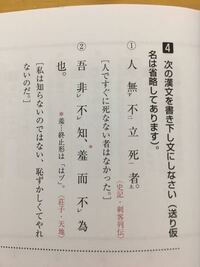 4 次の漢文を書き下し文にしなさい（送り仮
名は省略してあります）。
① 人無不立死者。
（史記・刺客列伝）
［人ですぐに死なない者はなかった。］
② 吾非レ不レ知、羞而不レ為
也。
＊羞＝終止形は「はヅ」。（荘子・天地）
［私は知らないのではない、恥ずかしくてやれ
ないのだ。］